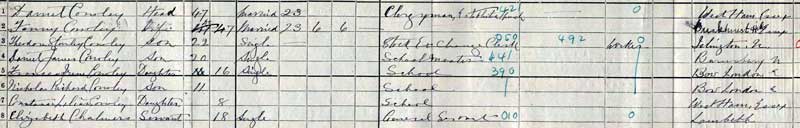 1 Cowley Head 47 Married 23 Clergyman, Established 0 West Ham Essex
2 Fanny Cowley Wife 47 Married 23 6 6
3 Cowley Son 22 Single Stock Exchange Clerk 050 492 Worker 0 Islington N
4 Daniel James Cowley Son 20 Single School Master 641 Barnsbury N
5 Cowley Daughter 16 Single School 390 Bow London E
6 Nicholas Richard Cowley Son 11 School Bow London E
7 Cowley Daughter 8 School West Ham, Essex
8 Elizabeth Chalmers Servant 18 Single General Servant 010 0 Lambeth